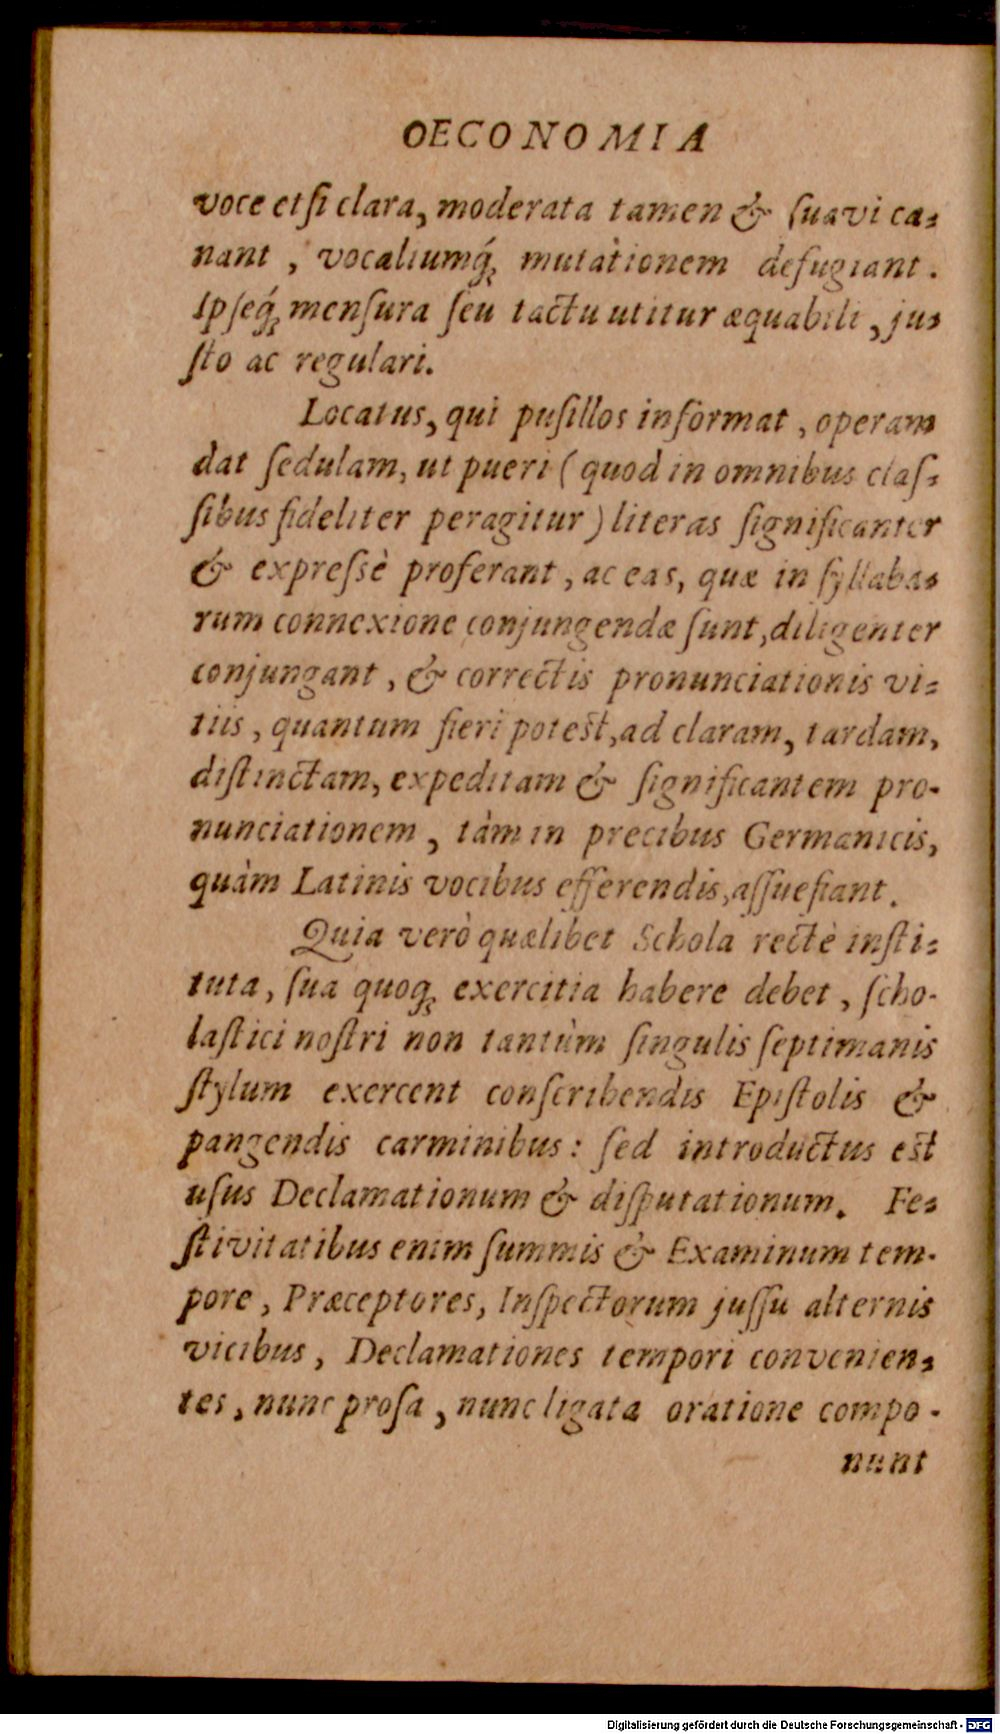 OECONOMIA
voce etſi clara, moderata tamen & ſuavi ca⸗
nant , vocaliumq́ꝫ mutationem defugiant .
Ipſeq́ꝫ menſura ſeu tactu utitur æquabili , ju⸗
ſto ac regulari.
Locatus, qui puſillos informat , operam
dat ſedulam, ut pueri ( quod in omnibus claſ⸗
ſibus fideliter peragitur ) literas ſignificanter
& expreſsè proferant , ac eas, quæ in ſyllaba⸗
rum connexione conjungendæ ſunt, diligenter
conjungant , & correctis pronunciationis vi⸗
tiis , quantum fieri poteſt, ad claram, tardam,
diſtinctam, expeditam & ſignificantem pro-
nunciationem , tàm in precibus Germanicis,
quàm Latinis vocibus efferendis, aſſuefiant .
Quia verò quælibet Schola rectè inſti⸗
tuta , ſua quoqꝫ exercitia habere debet , ſcho-
laſtici noſtri non tantùm ſingulis ſeptimanis
ſtylum exercent conſcribendis Epiſtolis &
pangendis carminibus : ſed introductus eſt
uſus Declamationum & diſputationum. Fe⸗
ſtivitatibus enim ſummis & Examinum tem-
pore , Præceptores, Inſpectorum juſſu alternis
vicibus , Declamationes tempori convenien⸗
tes , nunc proſa , nunc ligata oratione compo -
nunt
Digitalisierung gefördert durch die Deutsche Forschungsgemeinschaft - DFG